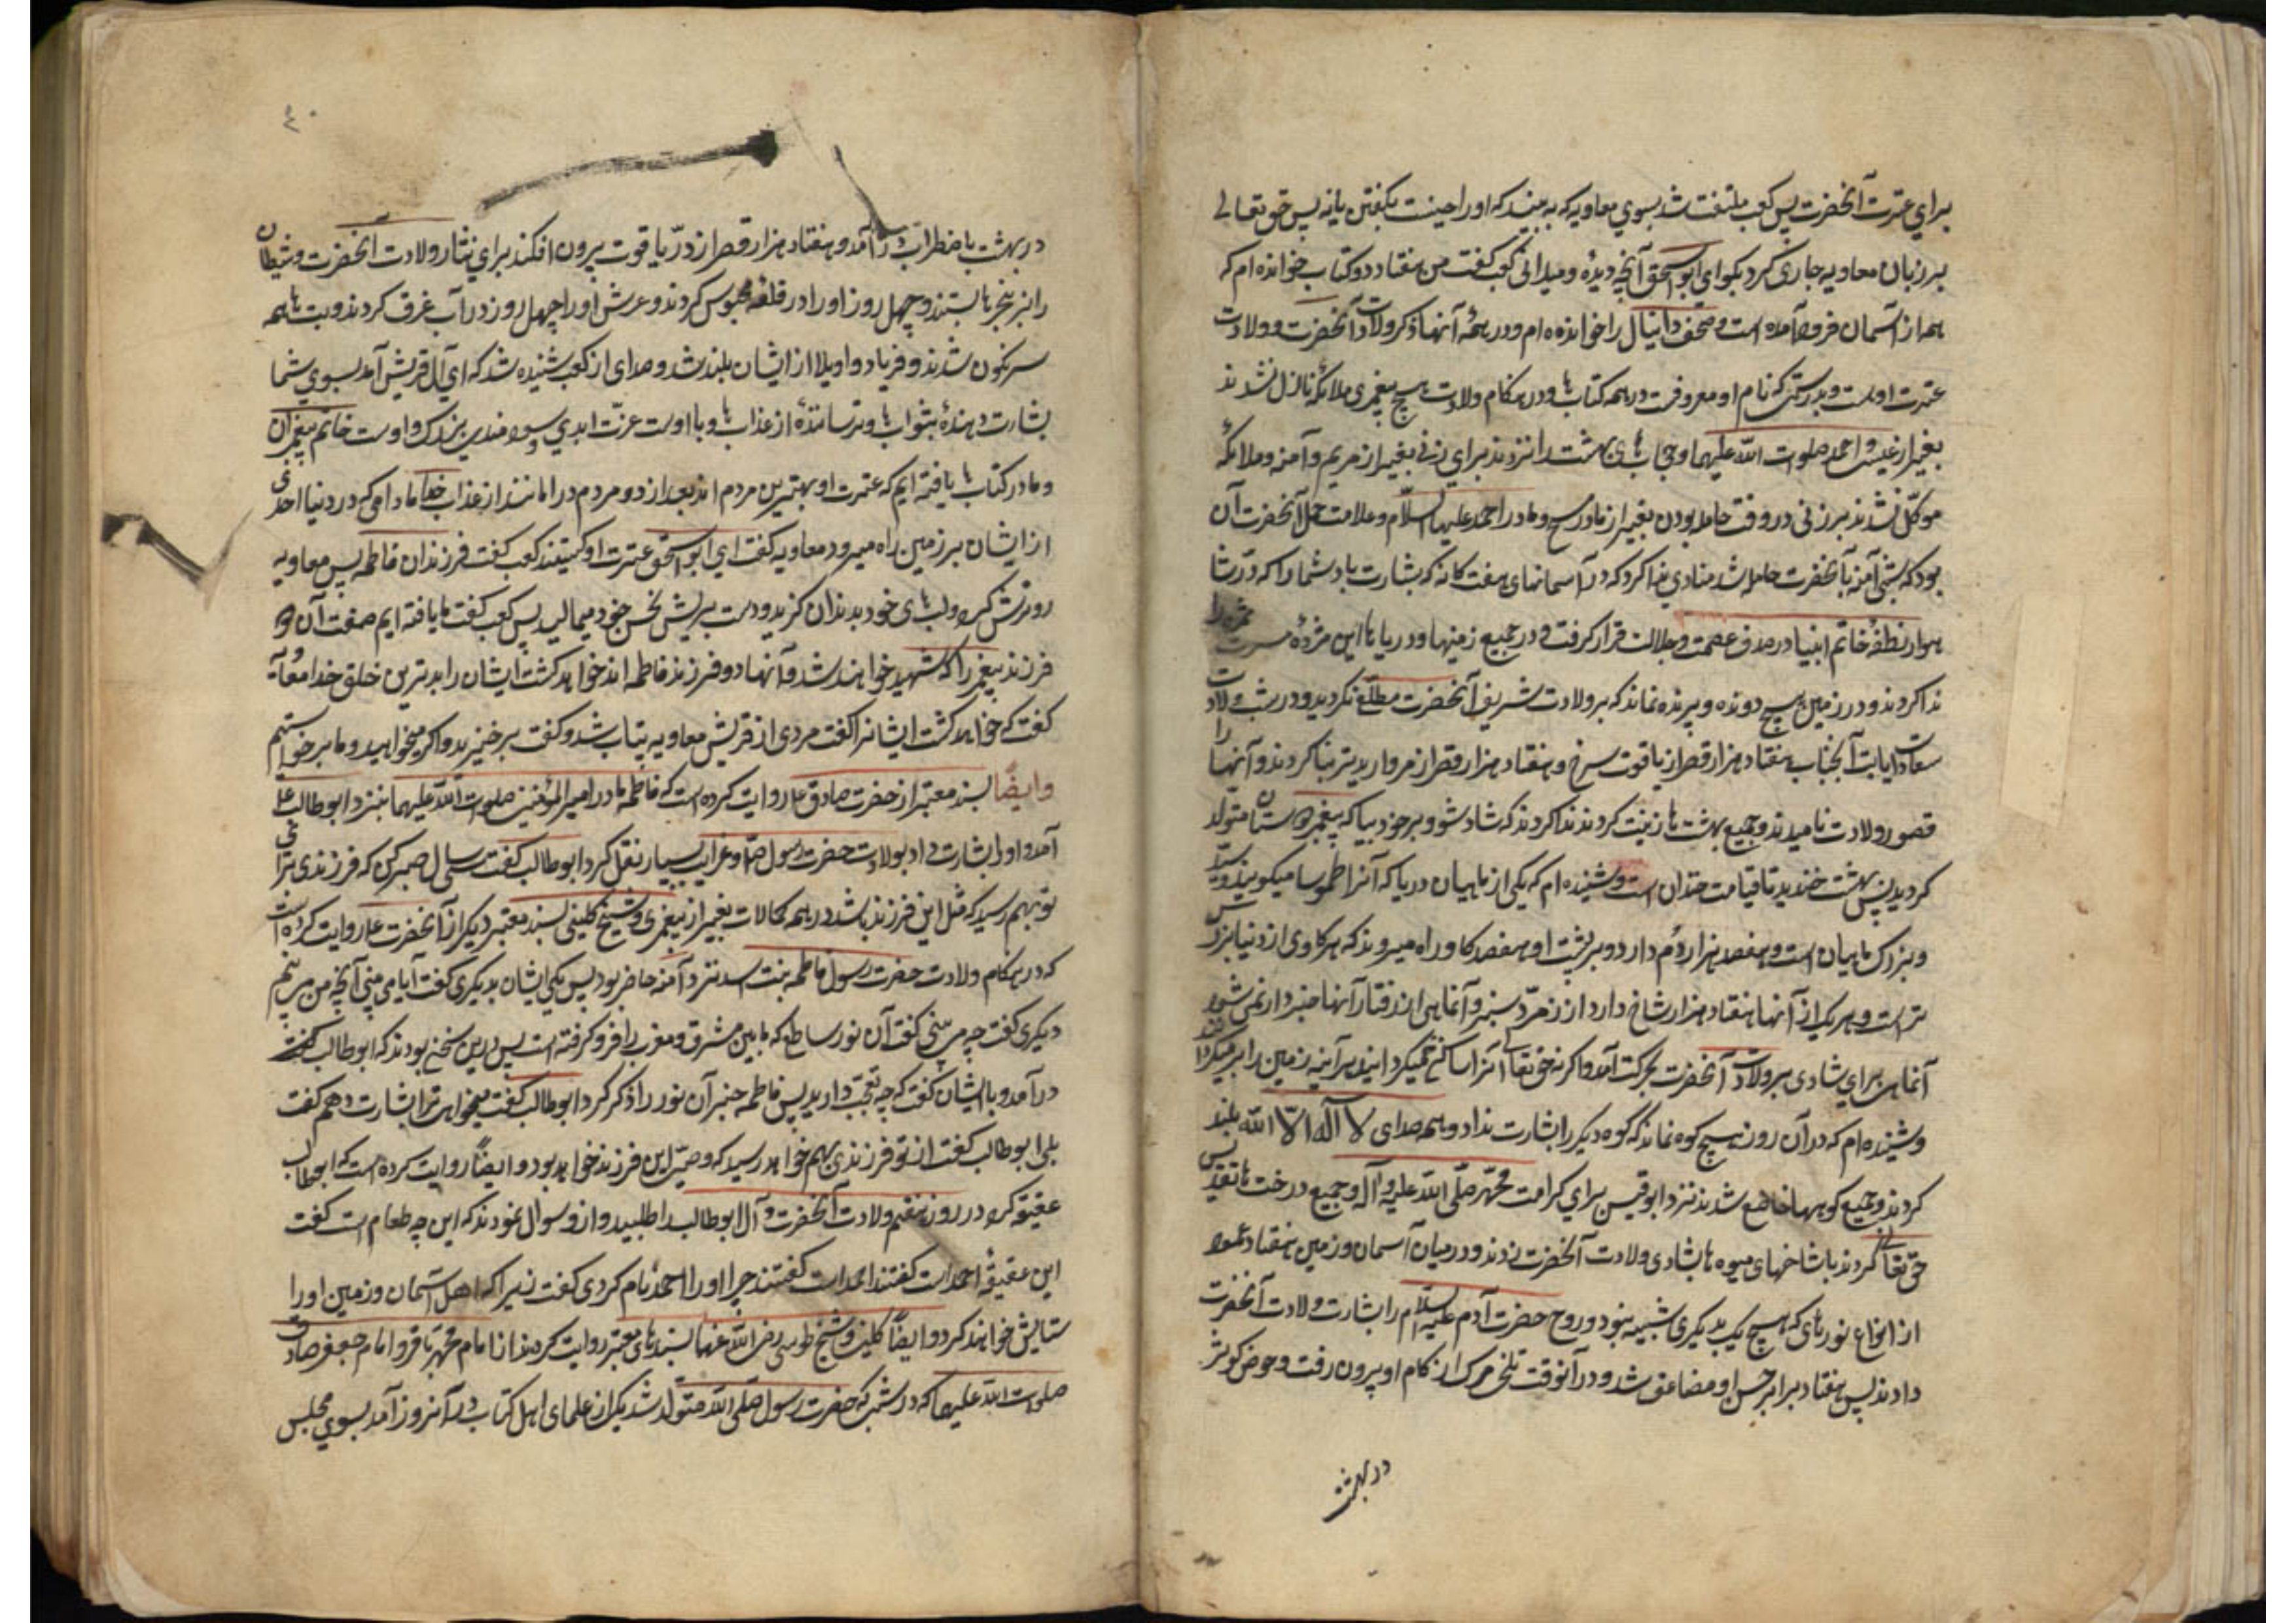 برای عترت آنحضرت پس کعب ملتفت شد بسوی معاویه که به بیند که او راضیست بگفتن یا نه پس حق تعالی
بر زبان معاویه جاری کرد بگو ای ابو اسحق آنچه دیدهٔ و میدانی کعب گفت من هفتاد دو کتاب خوانده ام که
همه از آسمان فرود آمده است و صحف دانیال را خوانده ام و در همهٔ آنها ذکر ولادت آنحضرت و ولادت
عترت او هست و بدرستی که نام او معروفست در همه کتاب ها و در هنگام ولادت هیچ پیغمبری ملائکه نازل نشدند
بغیر از عیسی و احمد صلوات الله علیهما و حجاب های بهشت را نزدند برای زنی بغیر از مریم و آمنه و ملائکه
موکل نشدند بر زنی در وقت حامله بودن بغیر از مادر مسیح و مادر احمد علیهما السلام و علامت حمل آنحضرت آن
بود که شبی آمنه بآنحضرت حامله شد منادی ندا کرد که در آسمانهای هفت کانه که بشارت باد شما را که در شا
هوار نطفهٔ خاتم انبیا در صدف عصمت و جلالت قرار گرفت و در جمیع زمینها و دریاها این مژدهٔ مسرت
ندا کردند و در زمین هیچ دونده و پرنده نماند که بر ولادت شریف آنحضرت مطلع نگردید و در شب ولادت
سعادت ایات آنجناب هفتاد هزار قصر از یاقوت سرخ و هفتاد هزار قصر از مروارید تر بنا کردند و آنها را
قصور ولادت نامیدند و جمیع بهشت ها زینت کردند ندا کردند که شاد شو و بر خود ببال که پیغمبر دوستان متولد
کردید پس بهشت خندید تا قیامت خندان است و شنیده ام که یکی از ماهیان دریا که آنرا طموسا میگویند و سید
و بزرک ماهیان است و هفصد هزار دُم دارد و بر پشت او هفصد کاو راه میروند که هر کاوی از دنیا بزرکتر
تر است و هر یک از آنها هفتاد هزار شاخ دارد از زمرّد سبز و آنماهی از رفتار آنها خبردار نمی شود
آنماهی برای شادی بر ولادت آنحضرت بحرکت آمد و اکر نه حق تعالی آنرا ساکن میکردانید هرآینه زمین را بر میکردانید
و شنیده ام که در آن روز هیچ کوه نماند که کوه دیکر را بشارت نداد و همه صدای لا آله الّا الله بلند
کردند و جمیع کوهها خاضع شدند نزد ابوقبیس برای کرامت محمّد صلّی الله علیه و آله و جمیع درخت ها تقدیس
حق تعالی کردند با شاخهای میوه ها بشادی ولادت آنحضرت زدند و در میان آسمان و زمین هفتاد عمود
از انواع نورهای که هیچ یک بدیکری شبیه نبود و روح حضرت آدم علیه السلام را بشارت ولادت آنحضرت
دادند پس هفتاد برابر حسن او مضاعف شد و در آنوقت تلخی مرک از کام او بیرون رفت و حوض کوثر
در بهشت
٤٠
در بهشت باضطراب در آمد و هفتاد هزار قصر از درّ یاقوت بیرون افکند برای نثار ولادت آنحضرت و شیطان
را بزنجیرها بستند و چهل روز او را در قلعه محبوس کردند و عرش او را چهل روز در آب غرق کردند و بت ها همه
سرنکون شدند و فریاد و اویلا از ایشان بلند شد و صدای از کعبه شنیده شد که ای آل قریش آمد بسوی شما
بشارت دهندهٔ بثواب ها و ترسانندهٔ از عذاب ها و با اوست عزّت ابدی و سودمندی بزرک و اوست خاتم پیغمبران
و ما در کتاب ها یافته ایم که عترت او بهترین مردم اند بعد از او و مردم در امانند از عذاب خدا مادامی که در دنیا احدی
از ایشان بر زمین راه میرود معاویه گفت ای ابو اسحق عترت او کیستند کعب گفت فرزندان فاطمه پس معاویه
رو ترش کرد و لب های خود بدندان کزید و دست بر ریش نحس خود میمالید پس کعب گفت ما یافته ایم صفت آن دو
فرزند پیغمبر را که شهید خواهند شد و آنها دو فرزند فاطمه اند خواهد کشت ایشان را بدترین خلق خدا معاویه
گفت که خواهد کشت ایشانرا گفت مردی از قریش معاویه بیتاب شد و گفت برخیزید و اکر میخواهید و ما برخواستیم
وایضًا بسند معتبر از حضرت صادق ع روایت کرده است که فاطمه مادر امیر المؤمنین صلوات الله علیهما بنزد ابو طالب
آمد و او را بشارت داد بولادت حضرت رسول ص و غرایب بسیار نقل کرد ابو طالب گفت سی سال صبر کن که فرزندی برای
تو بهم رسید که مثل این فرزند باشد در همه کمالات بغیر از پیغمبری و شیخ کلینی بسند معتبر دیکر از آنحضرت ع روایت کرده است
که در هنگام ولادت حضرت رسول فاطمه بنت اسد نزد آمنه حاضر بود پس یکی ایشان بدیکری گفت آیا می بینی آنچه من می بینم
دیکری گفت چه می بینی گفت آن نور ساطع که ما بین مشرق و مغرب را فرو گرفته است پس درین سخن بودند که ابو طالب
در آمد و باایشان گفت که چه تعجّب دارید پس فاطمه خبر آن نور را ذکر کرد ابو طالب گفت میخواهی ترا بشارت دهم گفت
بلی ابو طالب گفت از تو فرزندی بهم خواهد رسید که وصیّ این فرزند خواهد بود و ایضًا روایت کرده است که ابوطالب
عقیقه کرد در روز هفتم ولادت آنحضرت و آل ابو طالب را طلبید و از و سوال نمودند که این چه طعام است گفت
این عقیقهٔ احمد است گفتند چرا او را احمد نام کردی گفت زیرا که اهل آسمان و زمین او را
ستایش خواهند کرد و ایضًا کلینی و شیخ طوسی رضی الله عنهما بسندهای معتبر روایت کرده اند از امام محمّد باقر و امام جعفر صادق
صلوات الله علیهما که در شبی که حضرت رسول صلّی الله متولّد شد یکی از علمای اهل کتاب در آنروز آمد بسوی مجلس